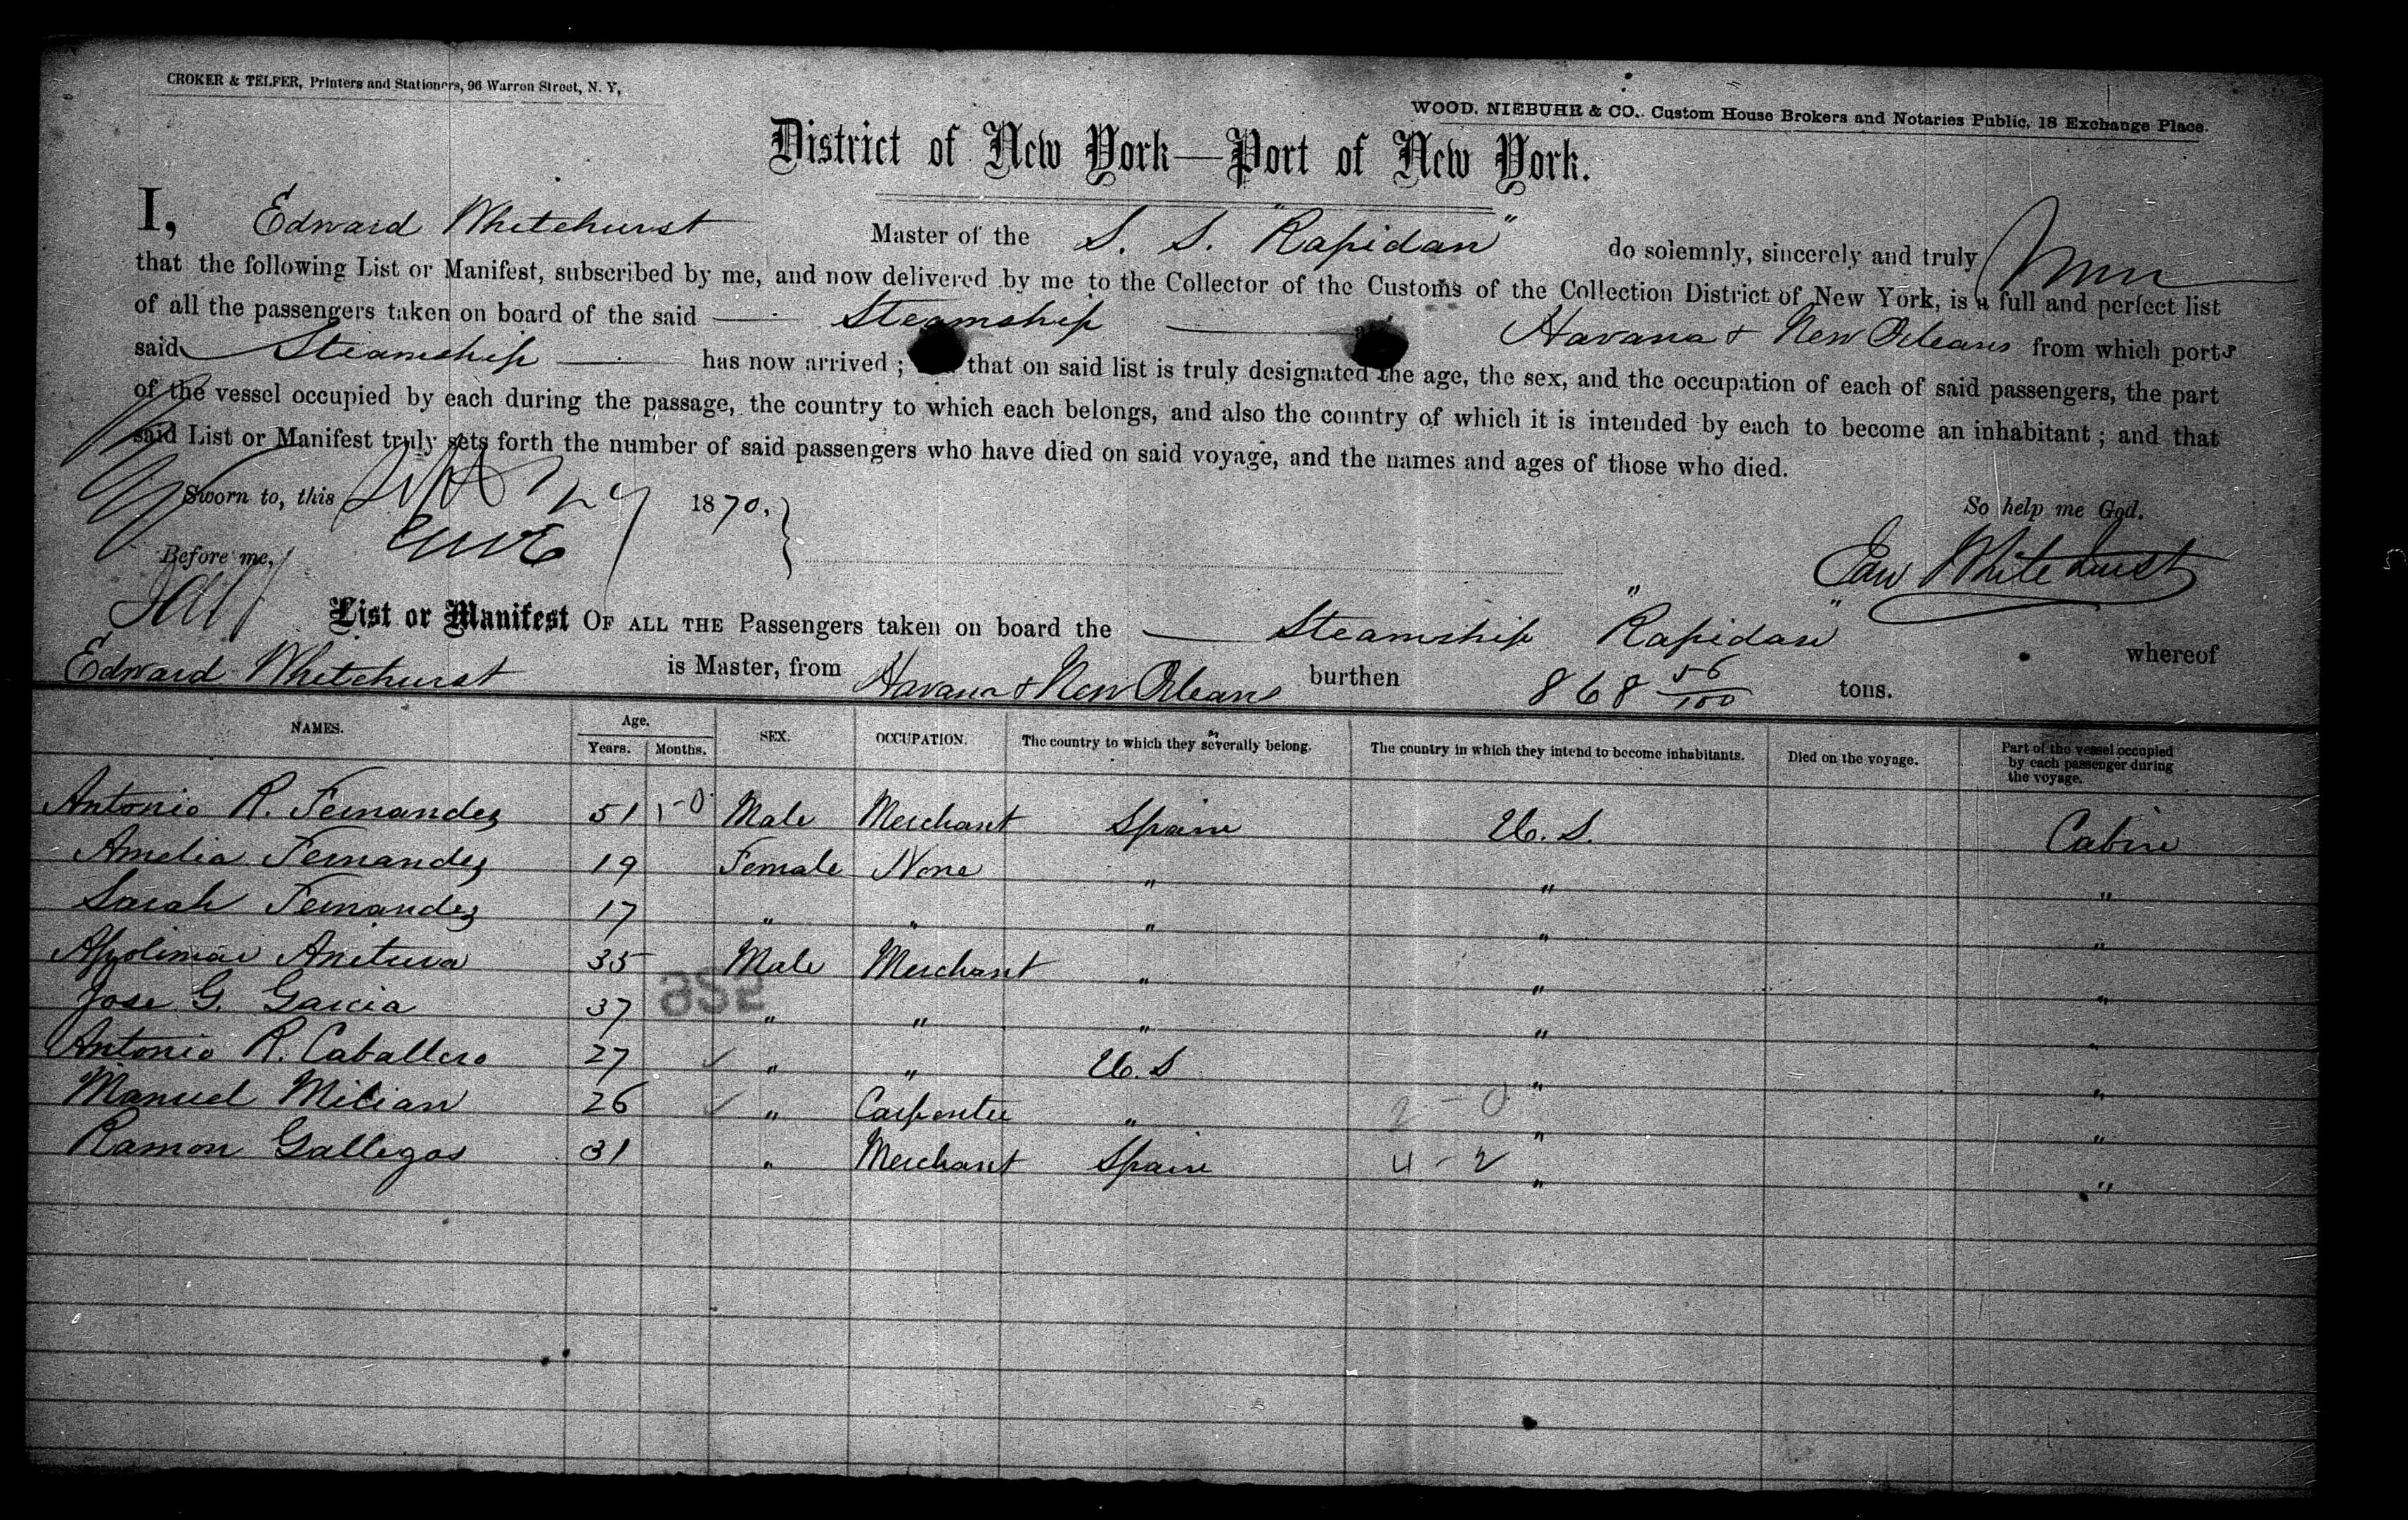 CROKER & TELFER, Printers and Stationers, 96 Warren Street, N. Y,
WOOD, NIEBUHR & CO., Custom House Brokers and Notaries Public, 18 Exchange Place.
District of New York—Port of New York.
I, Edward Whitehurst Master of the S. S. "Rapidan" do solemnly, sincerely and truly
that the following List or Manifest, subscribed by me, and now delivered by me to the Collector of the Customs of the Collection District of New York, is a full and perfect list
of all the passengers taken on board of the said Steamship Havana & New Orleans from which ports
said Steamship has now arrived; that on said list is truly designated the age, the sex, and the occupation of each of said passengers, the part
of the vessel occupied by each during the passage, the country to which each belongs, and also the country of which it is intended by each to become an inhabitant; and that
said List or Manifest truly sets forth the number of said passengers who have died on said voyage, and the names and ages of those who died.
Sworn to, this 1870,
So help me God.
Before me,
Edw Whitehurst
List or Manifest OF ALL THE Passengers taken on board the Steamship "Rapidan" whereof
Edward Whitehurst is Master, from Havana & New Orleans burthen 868 56/100 tons.
NAMES. Age. Years. Months. SEX. OCCUPATION. The country to which they severally belong. The country in which they intend to become inhabitants. Died on the voyage. Part of the vessel occupied by each passenger during the voyage.
Antonio R. Fernandez 51 Male Merchant Spain U. S. Cabin
Amelia Fernandez 19 Female None " " "
Sarah Fernandez 17 " " " " "
Apolinar 35 Male Merchant " " "
Jose G. Garcia 37 " " " " "
Antonio R. Caballero 27 " " U. S " "
Manuel Milian 26 " Carpenter " " "
Ramon Gallegos 31 " Merchant Spain " "